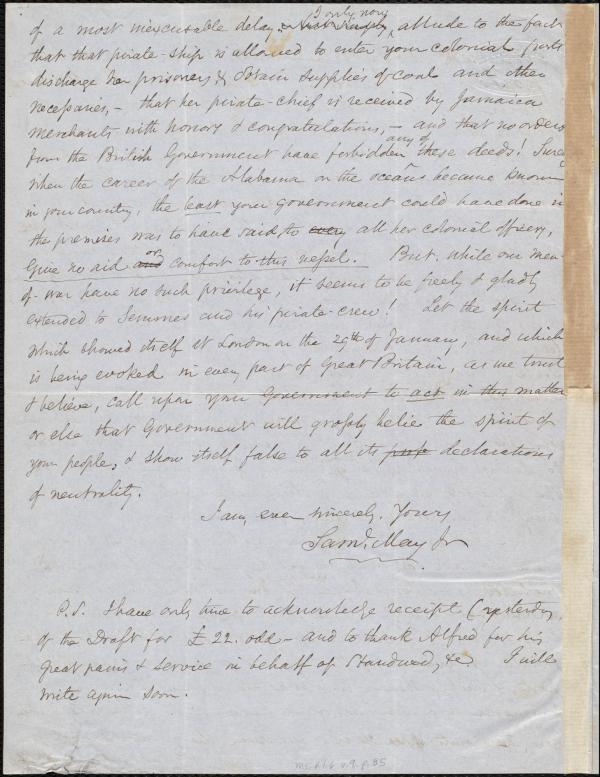 I only now
of a most inexcusable delay. allude to the fact
that that pirate-ship is allowed to enter your colonial ports
discharge her prisoners & obtain supplies of coal and other
necessaries, – that her pirate-chief is received by Jamaica
merchants with honors & congratulations, – and that no orders
any of
from the British Government have forbidden these deeds! Surely
when the career of the Alabama on the oceans became known
in your country, the least your Government could have done in
the premises was to have said to every all her colonial officers,
or
Give no aid and comfort to this vessel. But, while our men-
of-war have no such privilege, it seems to be freely & gladly
extended to Semmes and his pirate-crew! Let the spirit
which showed itself at London on the 29th of January, and which
is being evoked in every part of Great Britain, as we trust
& believe, call upon your Government to act in this matter
or else that Government will grossly belie the spirit of
your people, & show itself false to all its declarations
of neutrality.
I am, ever sincerely, Yours
Saml. May Jr
P.S. I have only time to acknowledge receipt (yesterday
of the Draft for £22. odd – and to thank Alfred for his
great pains & service in behalf of Standard, &c. I will
write again soon.